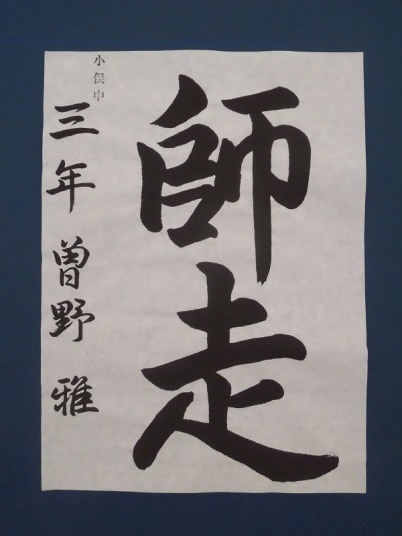 師走
小俣中
三年 曽野 雅